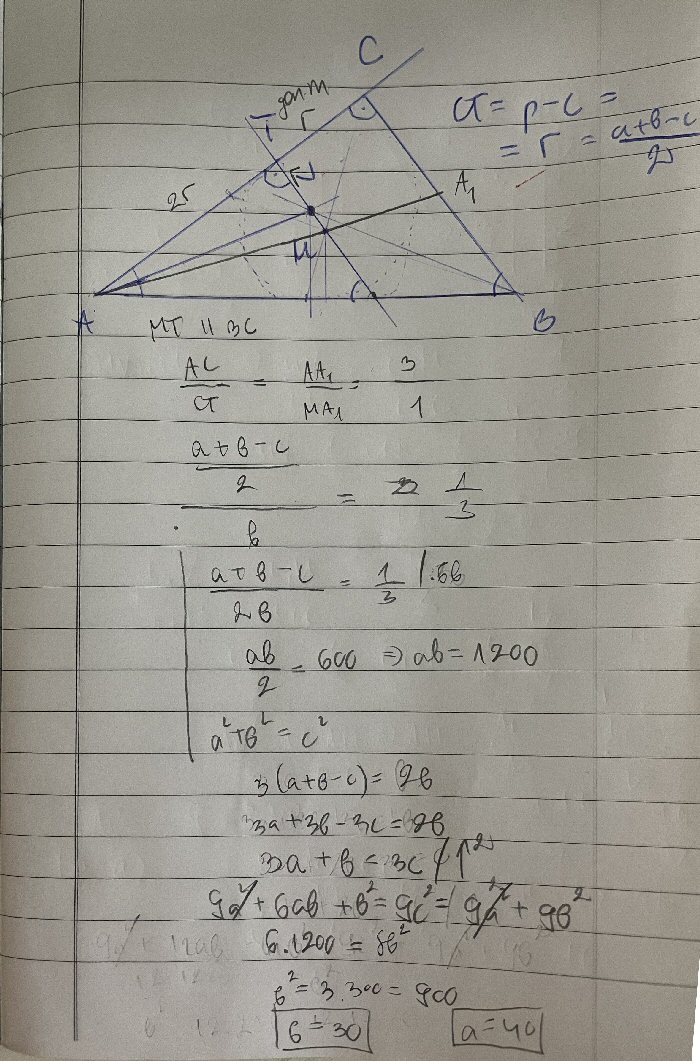 C
доп. m
T r
CT = p-c =
= r = (a+b-c)/2
2r
A₁
M
A
B
MT || BC
AC/CT = AA₁/MA₁ = 3/1
((a+b-c)/2)/b = 1/3
(a+b-c)/2b = 1/3 /.6b
ab/2 = 600 => ab = 1200
a²+b² = c²
3(a+b-c) = 2b
3a+3b-3c = 2b
3a+b = 3c /↑²
9a²+6ab+b² = 9c² = 9a²+9b²
6.1200 = 8b²
b² = 3.300 = 900
b = 30 a = 40